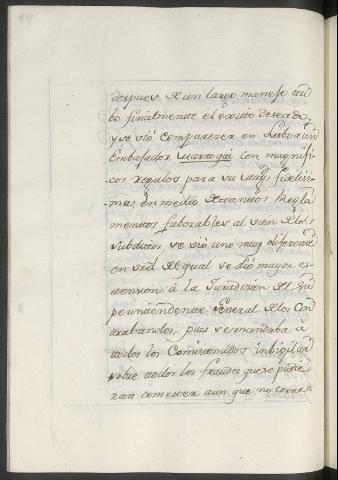 despues de un largo manejo tu-
bo finalmente el exito deseado,
y se vió comparecer en Lisboa un
Embaxador Marroqui con magnifi-
cos regalos para su Mag.d fidelisi-
ma; en medio de tantos Regla-
mentos faborables al vien de los
subditos, se vió uno muy diferente
en vrd. del qual se dió mayor es-
tension à la Juridicion del Su-
perintendente General de los Con-
trabandos, pues se mandaba à
todos los Comisionados imbigilar
sobre todos los fraudes que se pudie-
ran cometer aun que no corres-